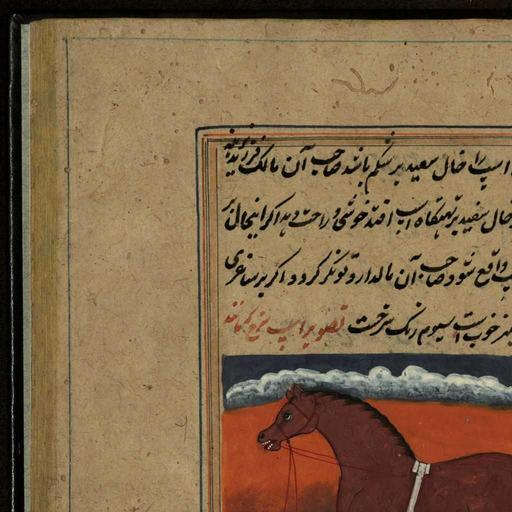 اسپ را خال سفید بر شکم باشد صاحب آن مالک
خال سفید بر تهیگاه اسپ افتد خوشی و راحت دهد اگر اینحال بر
واقع شود صاحب آن مالدار و تونگر گردد و اگر بر ساغری
خوب است سیوم رنک سرخست تصویر اسپ سرخ